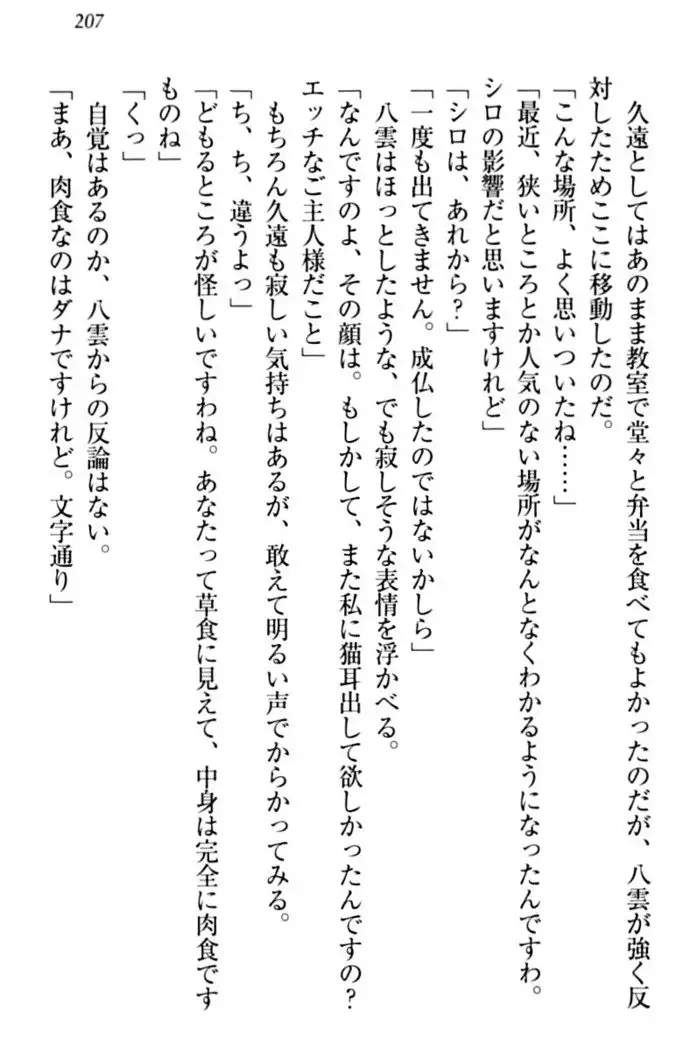 207
久遠としてはあのまま教室で堂々と弁当を食べてもよかったのだが、八雲が強く反
対したためここに移動したのだ。
「こんな場所、よく思いついたね……」
「最近、狭いところとか人気のない場所がなんとなくわかるようになったんですわ。
シロの影響だと思いますけれど」
「シロは、あれから？」
「一度も出てきません。成仏したのではないかしら」
八雲はほっとしたような、でも寂しそうな表情を浮かべる。
「なんですのよ、その顔は。もしかして、また私に猫耳出して欲しかったんですの？
エッチなご主人様だこと」
もちろん久遠も寂しい気持ちはあるが、敢えて明るい声でからかってみる。
「ち、ち、違うよっ」
「どもるところが怪しいですわね。あなたって草食に見えて、中身は完全に肉食です
ものね」
「くっ」
自覚はあるのか、八雲からの反論はない。
「まあ、肉食なのはダナですけれど。文字通り」